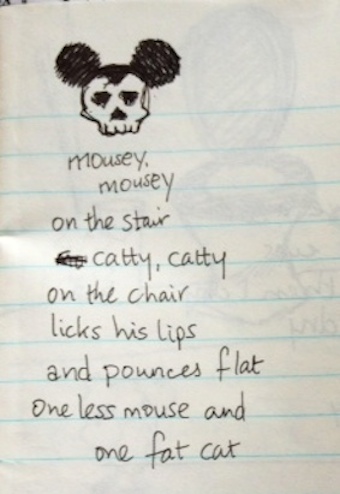 mousey,
mousey
on the stair
catty, catty
on the chair
licks his lips
and pounces flat
One less mouse and
one fat cat